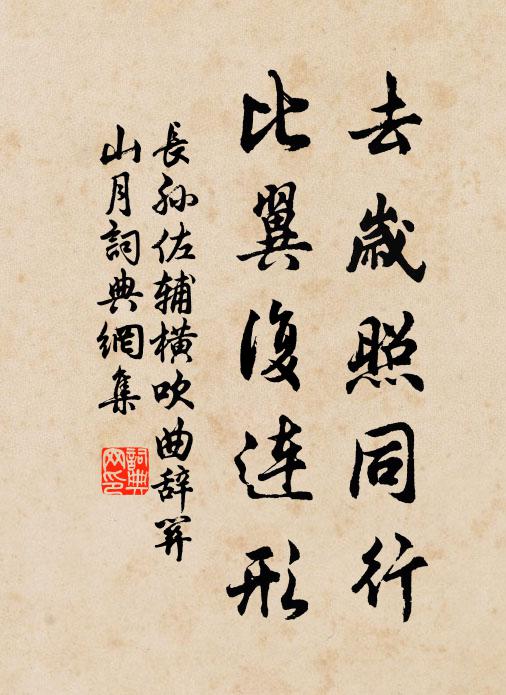 去歲照同行
比翼復连形
長孙佐辅横吹曲辞関
山月詞典網集
詞典
网印